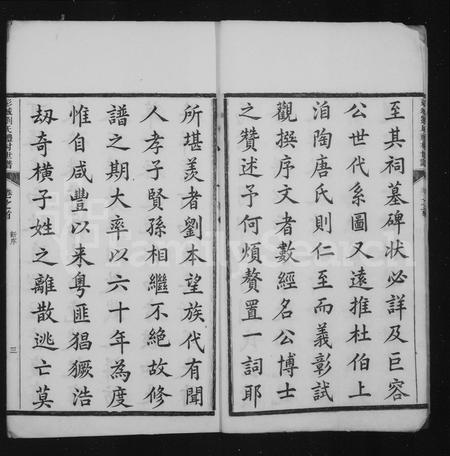 至其祠墓碑狀必詳及巨容
公世代系圖又遠推杜伯上
洎陶唐氏則仁至而義彰試
觀撰序文者數經名公博士
之贊述予何煩贅置一詞耶
所堪羡者劉本望族代有聞
人孝子賢孫相繼不絶故修
譜之期大率以六十年為度
惟自咸豐以来粤匪猖獗浩
刼奇橫子姓之離散逃亡莫
新序
三
FamilySearch